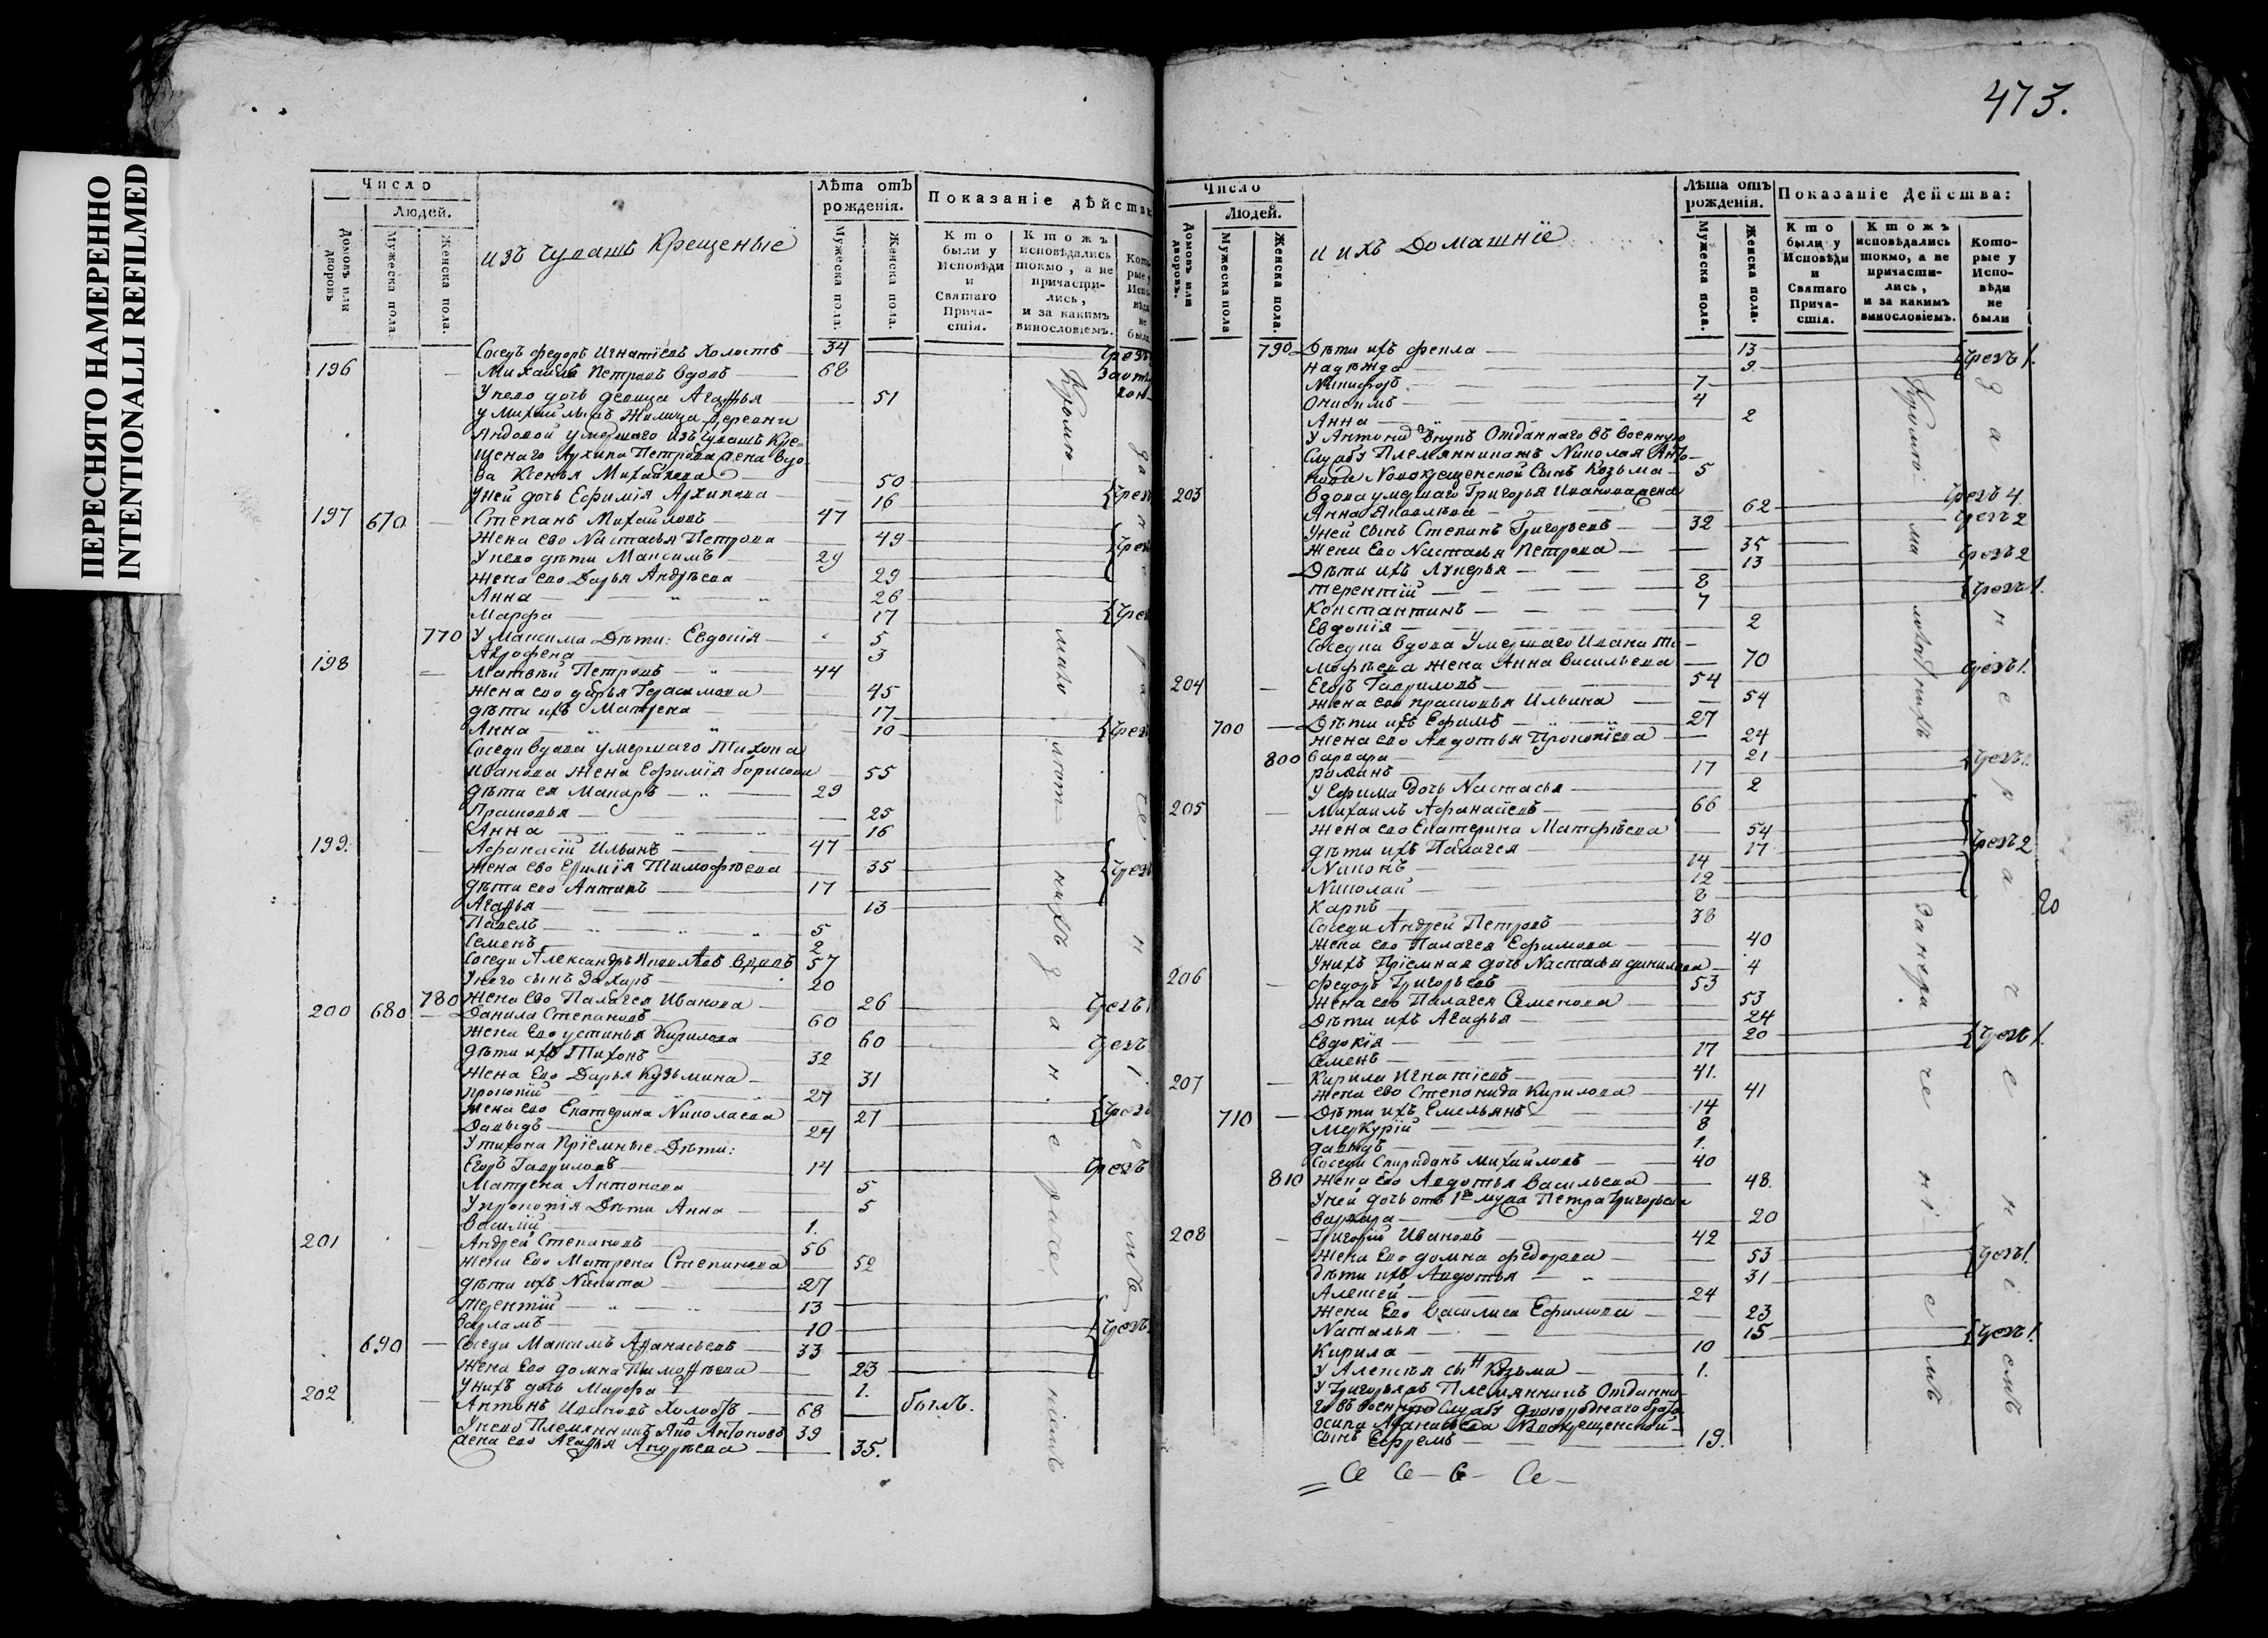 ПЕРЕСНЯТО НАМЕРЕННО
INTENTIONALLI REFILMED
473.
Число
Людей.
Домовъ или дворовъ
Мужеска пола.
Женска пола.
изъ чувашъ Крещеные
Лѣта отъ рожденія.
Мужеска пола.
Женска пола.
Показаніе дѣйства
Кто были у Исповѣди и Святаго Причастія.
Ктожъ исповѣдались токмо, а не причастились, и за какимъ винословіемъ.
Сосѣдъ федоръ Игнатіевъ Холостъ 34
196 Михайла Петровъ вдовъ 68
У нево дочь девица Агафья 51
у Михайлы жилица деревни
умершаго изъ чувашъ Кре-
щенаго Архипа Петрова жена вдо-
ва Ксенья Михайлова 50
У ней дочь Ефимія Архипова 16
197 670 Степанъ Михайловъ 47
Жена ево Настасья Петрова 49
У нево дѣти Максимъ 29
Жена ево Дарья Андрѣева 29
Анна 26
Марфа 17
770 У Максима Дѣти: Евдокія 5
Агрофена 3
198 Матвѣй Петровъ 44
Жена ево дарья Герасимова 45
дѣти ихъ Матрена 17
Анна 10
Соседи вдова умершаго Тихона
Иванова жена Ефимія борисова 55
дѣти ея Макаръ 29
Прасковья 25
Анна 16
199. Афанасій Ильинъ 47
Жена ево Ефимія Тимофѣева 35
дѣти ево Антипъ 17
Агафья 13
Павелъ 5
Семенъ 2
Соседи Александръ Яковлевъ вдовъ 57
У него сынъ Захаръ 20
780 Жена ево Палагея Иванова 26
200 680 Данила Степановъ 60
Жена Ево устинья Кирилова 60
дѣти ихъ Тихонъ 32
Жена Ево Дарья Кузьмина 31
прокопій 27
Жена ево Екатерина Николаева 27
Давыдъ 24
У тихона Пріемные Дѣти:
Егоръ Гавриловъ 14
Матрена Антонова 5
У прокопія Дѣти Анна 5
Василій 1.
201 Андрей Степановъ 56
Жена Ево Матрена Степанова 52
дѣти ихъ Никита 27
терентій 13
Варламъ 10
690 Соседи Максимъ Афанасьевъ 33
Жена Ево домна Тимофѣева 23
У нихъ дочь Марфа 1.
202 Антонъ Ивановъ Холостъ 68 былъ.
У нево Племянникъ Антоновъ 39
жена ево Агафья Андрѣева 35.
Кромѣ мало лѣт нихъ за не раче ніемъ
Число
Людей.
Домовъ или дворовъ.
Мужеска пола
Женска пола.
и ихъ Домашніе
Лѣта отъ рожденія.
Мужеска пола.
Женска пола.
Показаніе Дѣйства:
Кто были у Исповѣди и Святаго Причастія.
Ктожъ исповѣдались токмо, а не причастились, и за какимъ винословіемъ.
Которые у Исповѣди не были
790 Дѣти ихъ фекла 13
Надежда 9
Никифоръ 7
Онисимъ 4
Анна 2
У Антона внукъ Отданнаго въ военную
Службу Племянникомъ Николая Анто-
нова Новокрещенской Сынъ Козьма 5
203 Вдова умершаго Григорья Иванова жена
Анна Яковлева 62
У ней сынъ Степанъ Григорьевъ 32
Жена Ево Настасья Петрова 35
Дѣти ихъ Лукерья 13
терентій 8
Константинъ 7
Евдокія 2
Соседка вдова Умершаго Ивана Ти-
мофѣева жена Анна Васильева 70
204 Егоръ Гавриловъ 54
Жена ево прасковья Ильина 54
700 Дѣти ихъ Ефимъ 27
Жена ево Авдотья Прокопіева 24
800 Варвара 21
романъ 17
У Ефима дочь Настасья 2
205 Михаилъ Афанасіевъ 66
Жена ево Екатерина Матфѣева 54
дѣти ихъ Палагея 17
Никонъ 14
Николай 12
Карпъ 8
Соседи Андрей Петровъ 38
Жена ево Палагея Ефимова 40
У нихъ Пріемная дочь Настасья данилова 4
206 федоръ Григорьевъ 53
Жена ево Палагея Семенова 53
Дѣти ихъ Агафья 24
Евдокія 20
Семенъ 17
207 Кирила Игнатіевъ 41.
Жена ево Степонида Кирилова 41
710 Дѣти ихъ Емельянъ 14
Меркурій 8
давыдъ 1.
Соседи Спиридонъ Михайловъ 40
810 Жена Ево Авдотья Васильева 48.
У ней дочь отъ 1го мужа Петра Григорьева
Варвара 20
208 Григорій Ивановъ 42
Жена Ево домна федорова 53
Дѣти ихъ Авдотья 31
Алексей 24
Жена Ево Василиса Ефимова 23
Наталья 15
Кирила 10
У Алексѣя сынъ Козьма 1.
У Григорья Племянникъ Отданна-
го въ военную Службу двоюроднаго брата
Осипа Афанасьева Новокрещенской
сынъ Ефремъ 19.
Кромѣ ма лолѣтнихъ за нера че ні е мъ
20